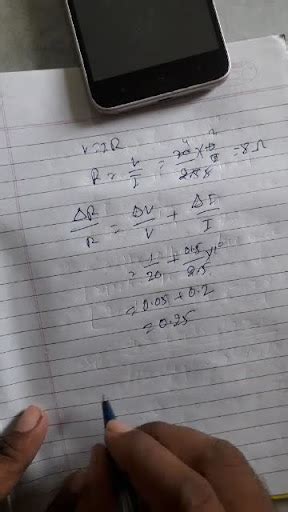 V=IR
R = V/I = 20 × 10/25 = 8 Ω
ΔR/R = ΔV/V + ΔI/I
= 1/20 + 0.5/2.5
= 0.05 + 0.2
= 0.25